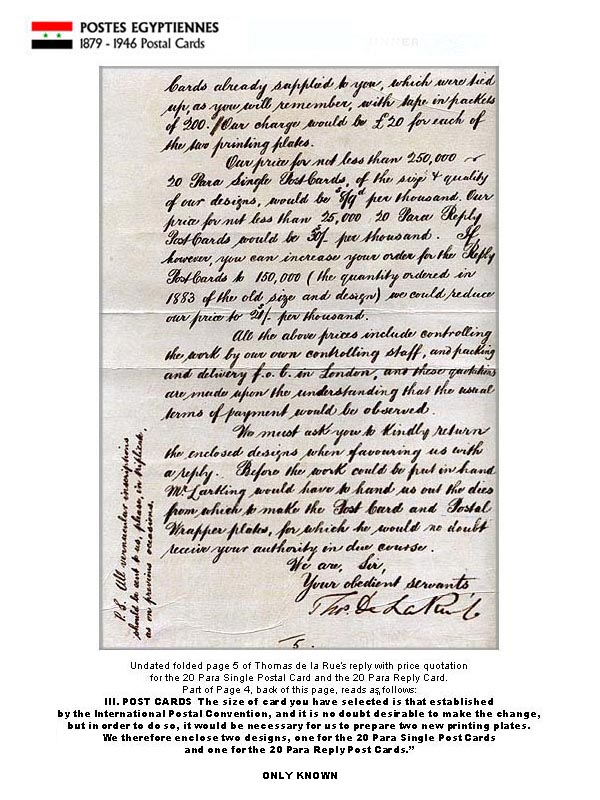 POSTES EGYPTIENNES
1879 - 1946 Postal Cards
Cards already supplied to you, which were tied
up, as you will remember, with tape in packets
of 200. Our charge would be £20 for each of
the two printing plates.
Our price for not less than 250,000
20 Para Single Post Cards, of the size & quality
of our designs, would be 5/9d per thousand. Our
price for not less than 25,000 20 Para Reply
Post Cards would be 30/- per thousand. If
however, you can increase your order for the Reply
Post Cards to 150,000 (the quantity ordered in
1883 of the old size and design) we could reduce
our price to per thousand.
All the above prices include controlling
the work by our own controlling staff, and packing
and delivery f.o.b. in London, and these quotations
are made upon the understanding that the usual
terms of payment would be observed.
We must ask you to kindly return
the enclosed designs when favouring us with
a reply. Before the work could be put in hand
Mr. Larking would have to hand us out the dies
from which to make the Post Card and Postal
Wrapper plates, for which he would no doubt
receive your authority in due course.
We are, Sir,
Your obedient servants
Thos. De La Rue & Co
P.S. All vernacular inscriptions
should be sent to us, please, in triplicate,
as on previous occasions.
5.
Undated folded page 5 of Thomas de la Rue's reply with price quotation
for the 20 Para Single Postal Card and the 20 Para Reply Card.
Part of Page 4, back of this page, reads as follows:
III. POST CARDS The size of card you have selected is that established
by the International Postal Convention, and it is no doubt desirable to make the change,
but in order to do so, it would be necessary for us to prepare two new printing plates.
We therefore enclose two designs, one for the 20 Para Single Post Cards
and one for the 20 Para Reply Post Cards.”
ONLY KNOWN